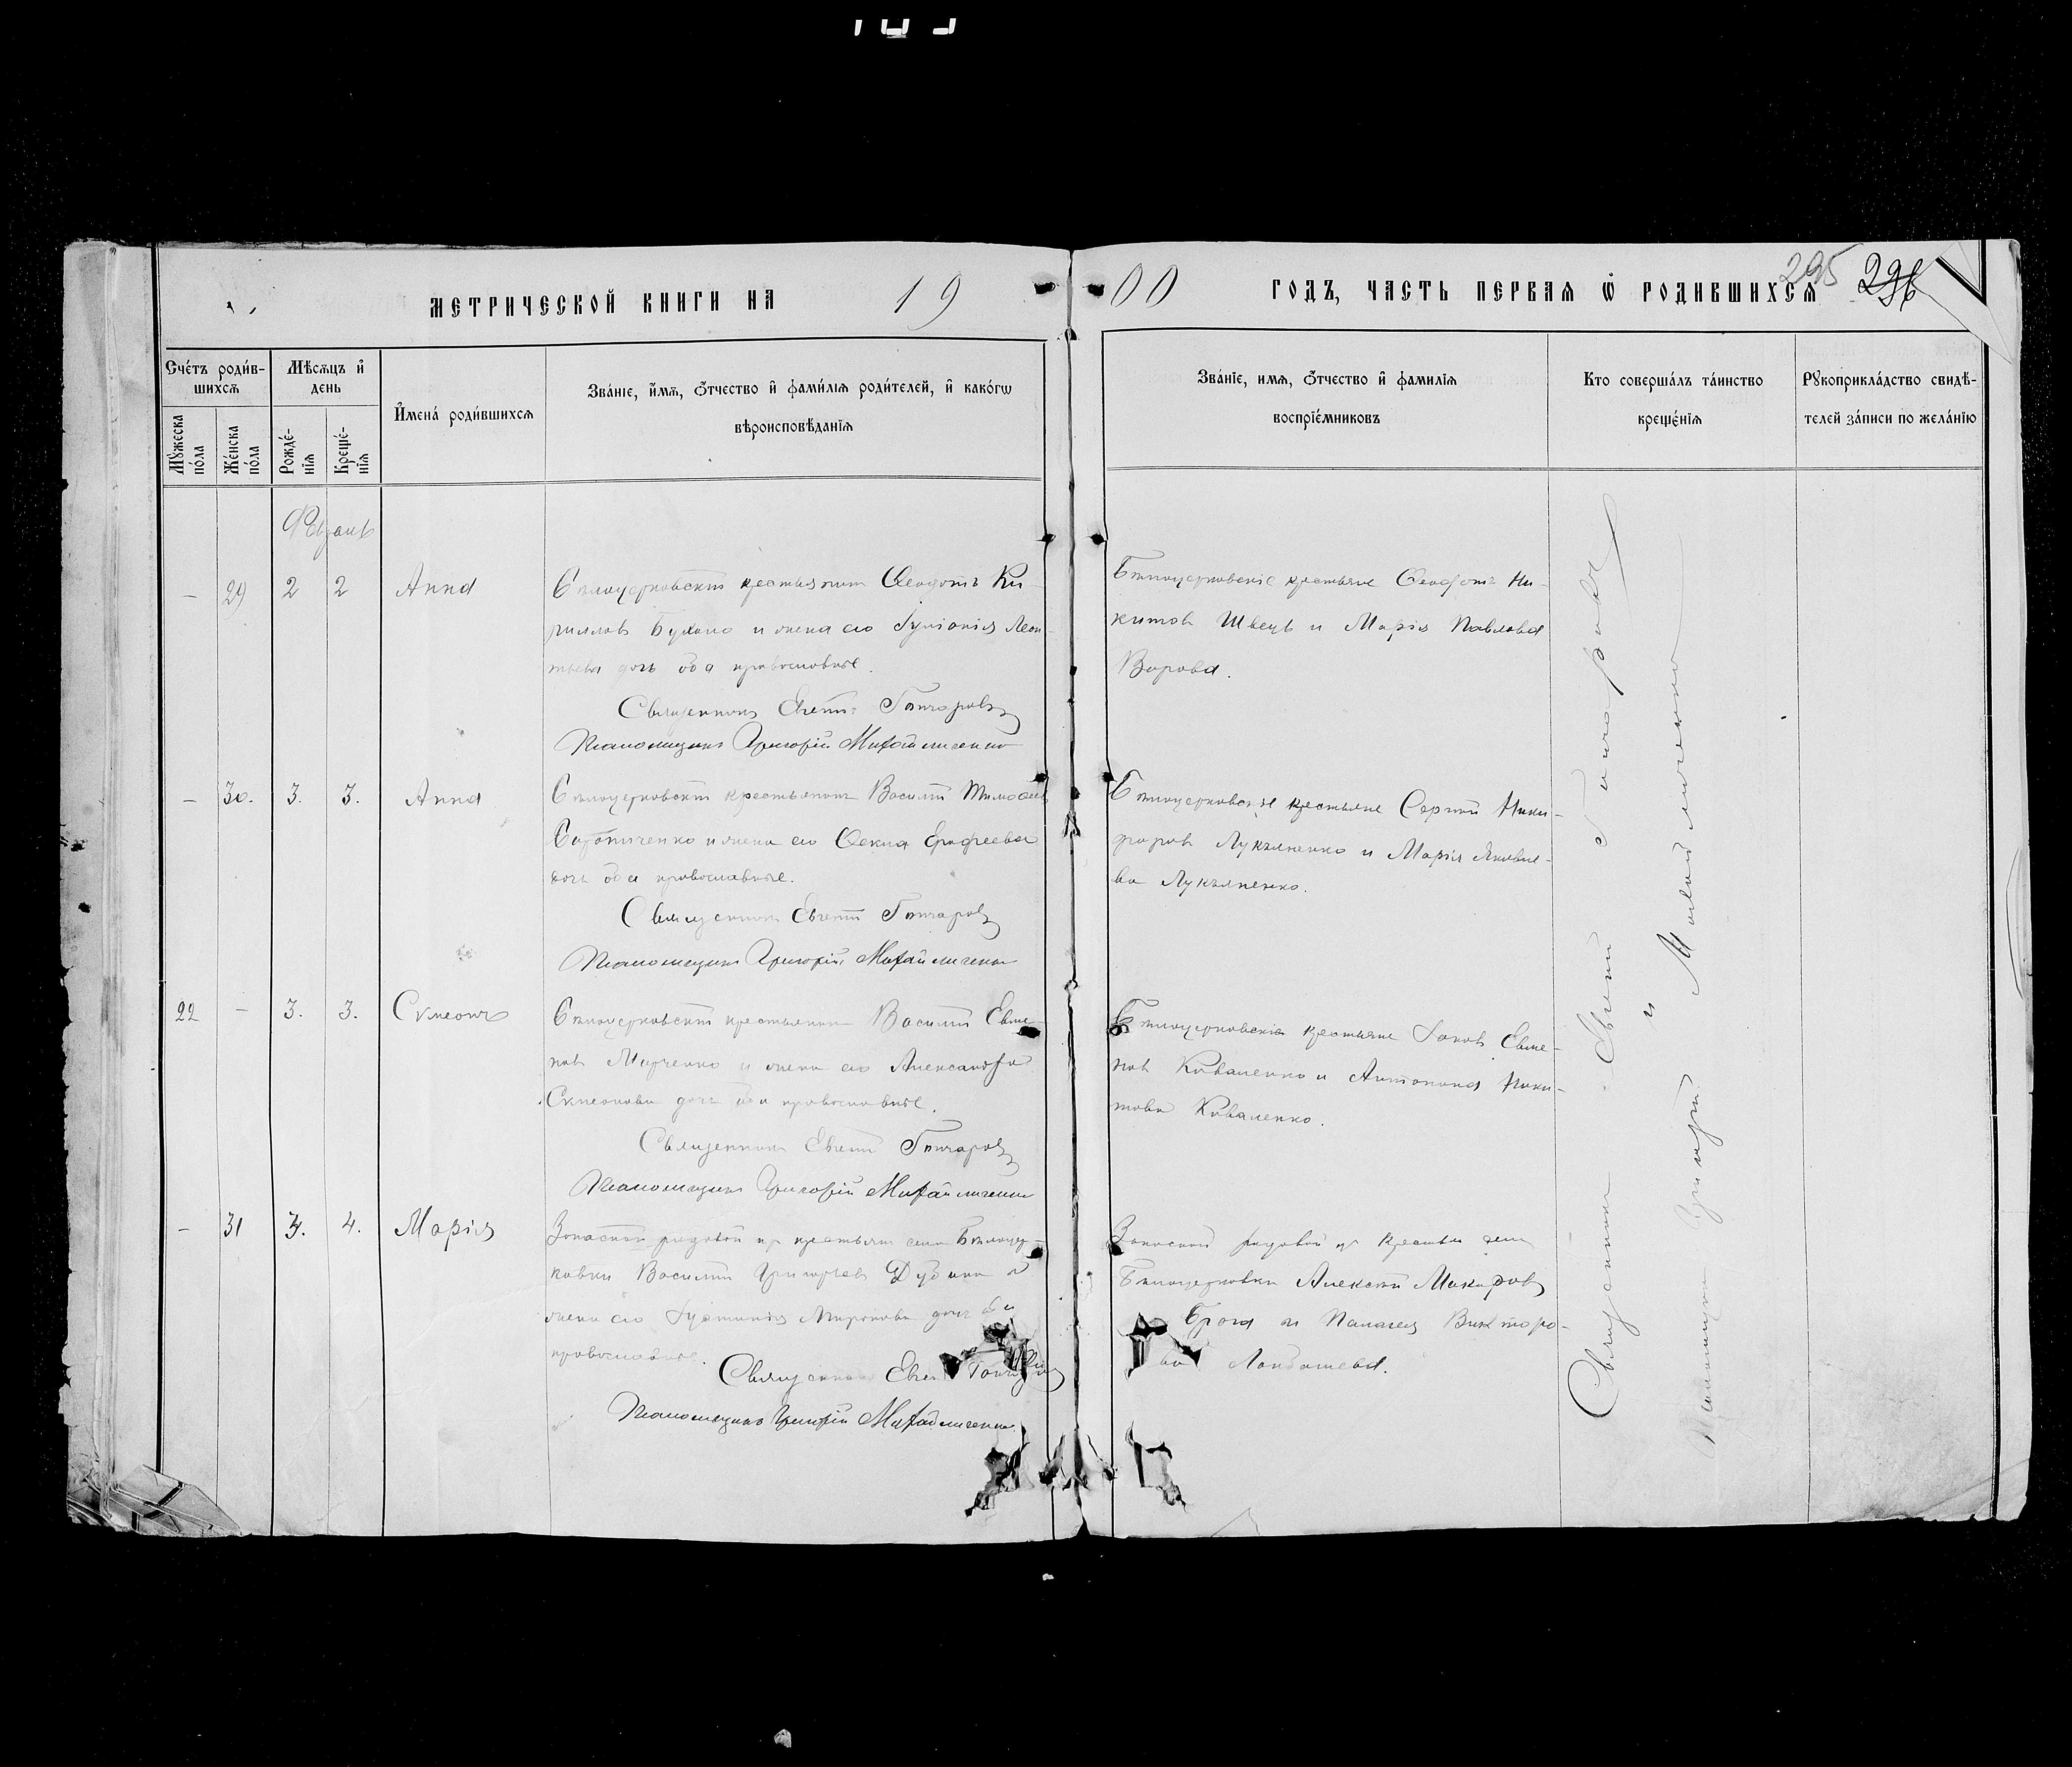 МЕТРИЧЕСКОЙ КНИГИ НА 19
00 ГОДЪ, ЧАСТЬ ПЕРВАЯ Ѡ РОДИВШИХСЯ 295
Счетъ родив-
шихся
Мужеска
пола
Женска
пола
Мѣсяцъ и
день
Рожде-
нія
Креще-
нія
Имена родившихся
Званіе, имя, отчество и фамилія родителей, и какогѡ
вѣроисповѣданія
Званіе, имя, отчество и фамилія
воспріемниковъ
Кто совершалъ таинство
крещенія
Рукоприкладство свидѣ-
телей записи по желанію
Февраль
— 29 2 2 Анна
Бѣлоцерковскій крестьянинъ Ѳеодотъ Ки-
рилловъ и жена его Леон-
тьева дочь оба православные.
Священникъ Евгеній Гончаровъ
Псаломщикъ Григорій Михайличенко
Бѣлоцерковскіе крестьяне Ѳеодотъ Ни-
китовъ Швецъ и Марія Павлова
— 30. 3. 3. Анна
Бѣлоцерковскій крестьянинъ Василій Тимоѳеевъ
и жена его Ѳекла Ерофеева
дочь оба православные.
Священникъ Евгеній Гончаровъ
Псаломщикъ Григорій Михайличенко
Бѣлоцерковскіе крестьяне Сергій Ники-
форовъ Лукьяненко и Марія Яковле-
ва Лукьяненко.
22 — 3. 3. Симеонъ
Бѣлоцерковскій крестьянинъ Василій Евме-
новъ Марченко и жена его Александра
Симеонова дочь оба православные.
Священникъ Евгеній Гончаровъ
Псаломщикъ Григорій Михайличенко
Бѣлоцерковскіе крестьяне Іаковъ Евме-
новъ Коваленко и Антонина Ники-
това Коваленко.
— 31 3. 4. Марія
Запасной рядовой изъ крестьянъ села Бѣлоцер-
ковки Василій Григорьевъ и
жена его Іустинія Миронова дочь оба
православные.
Священникъ Евгеній Гончаровъ
Псаломщикъ Григорій Михайличенко
Запасной рядовой изъ крестьянъ села
Бѣлоцерковки Алексій Макаровъ
и Пелагея Викторо-
ва
Священникъ Евгеній Гончаровъ
и
Псаломщикъ Григорій Михайличенко